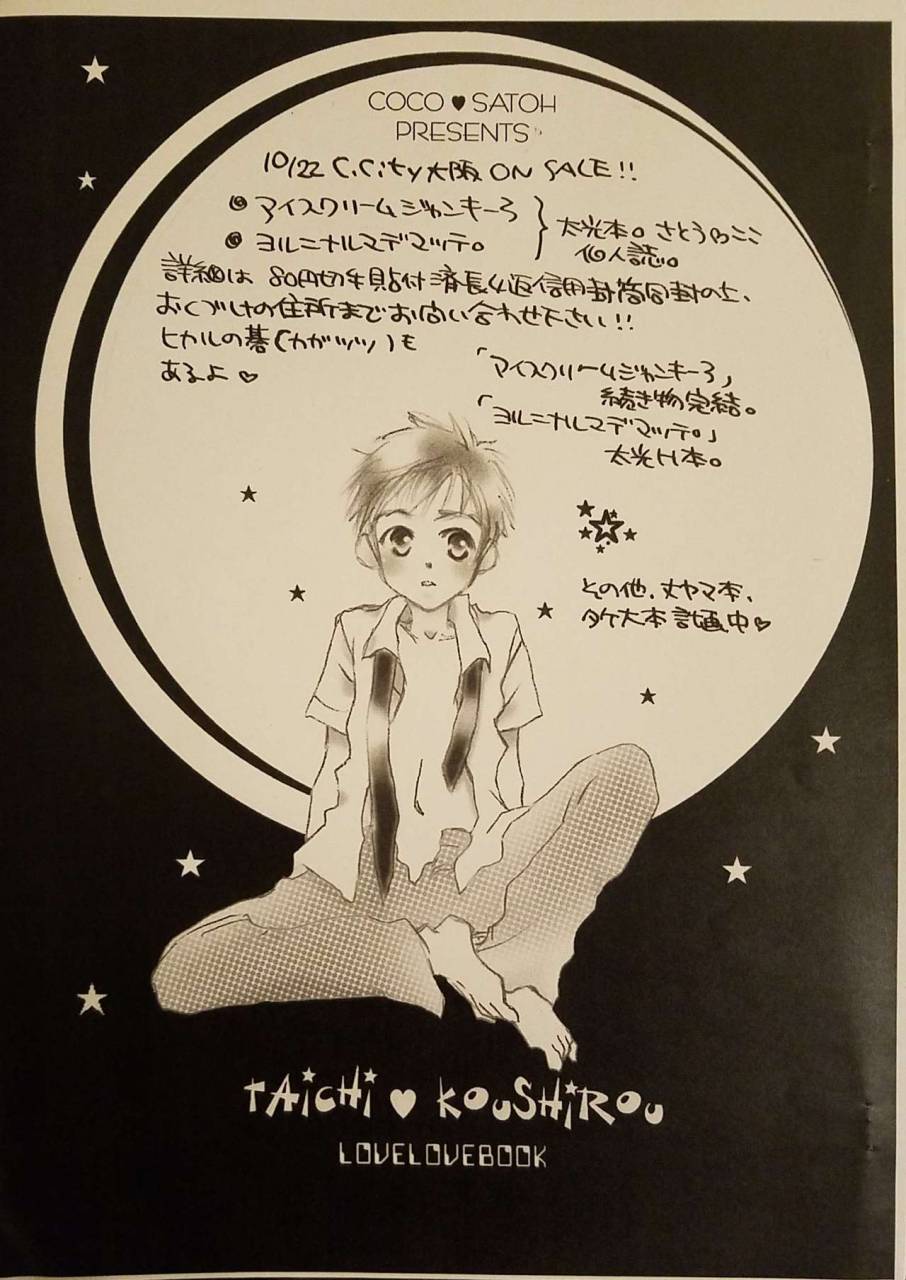 COCO ♥ SATOH
PRESENTS
10/22 C.City大阪 ON SALE!!
◎ マイスクリームジャンキー3
◎ ヨルニナルマデマッテ。
太光本。さとうつここ
個人誌。
詳細は 80円切手貼付済長4返信用封筒同封の上、
おくづけの住所までお問い合わせ下さい!!
ヒカルの碁(カガツツ)も
あるよ♡
「マイスクリームジャンキー3」
続き物完結。
「ヨルニナルマデマッテ。」
太光H本。
その他、丈ヤマ本、
タケ大本計画中♡
TAiCHi ♥ KOUSHiROU
LOVELOVEBOOK